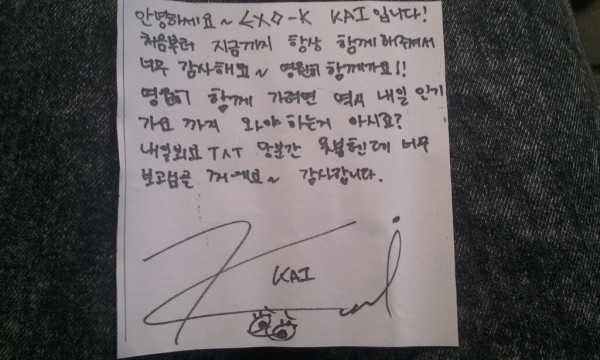 안녕하세요~ EXO-K KAI입니다!
처음부터 지금까지 항상 함께해줘서
너무 감사해요~ 영원히 함께가요!!
영원히 함께 가려면 역시 내일 인기
가요 까지 와야 하는거 아시죠?
내일봐요 TAT 당분간 못볼텐데 너무
보고싶을 거예요~ 감사합니다.
KAI